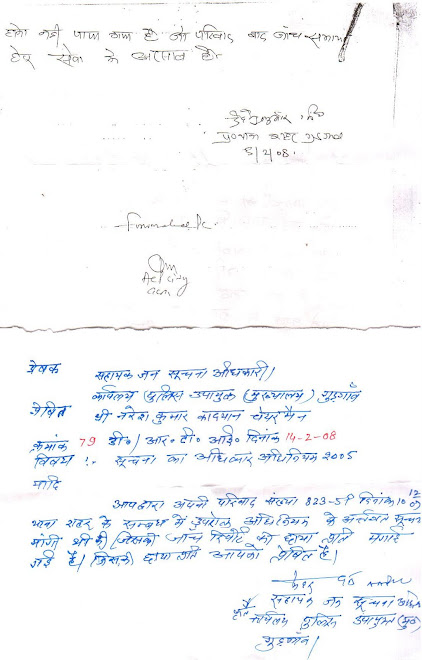 होना नहीं पाया गया है जो परिवाद बाद जाँच समाप्त
हेतु सेवा में प्रस्तुत है।
प्रबन्धक थाना शहर गुड़गांव
5/2/08.
Forwarded Pl.
ACP City
GGN
प्रेषक सहायक जन सूचना अधिकारी/
कार्यालय पुलिस उपायुक्त (मुख्यालय) गुड़गाँव
प्रेषित श्री नरेश कुमार कादयान चेयरमैन
क्रमांक 79 डी०/आर० टी० आई० दिनांक 14-2-08
विषय :- सूचना का अधिकार अधिनियम 2005
यादि
आपद्वारा अपनी परिवाद संख्या 823-5P दिनांक 10.12.07
थाना शहर के सम्बन्ध में उपरोक्त अधिनियम के अन्तर्गत सूचना
मांगी थी जिसकी जांच रिपोर्ट की छाया प्रति मंगाई
गई है। जिसकी छाया प्रति आपको प्रेषित है।
सहायक जन सूचना अधि०
कृते कार्यालय पुलिस उपायुक्त (मु०)
गुड़गाँव।